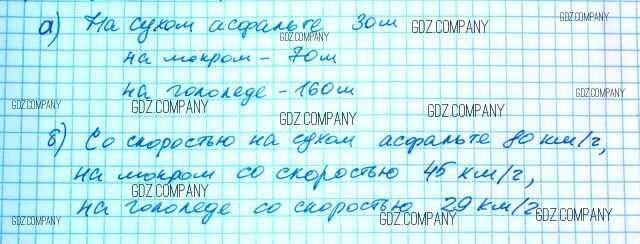 а) На сухом асфальте 30м
на мокром - 70м
на гололеде - 160м
б) Со скоростью на сухом асфальте 80 км/г,
на мокром со скоростью 45 км/г,
на гололеде со скоростью 29 км/г
GDZ.COMPANY
GDZ.COMPANY
GDZ.COMPANY
GDZ.COMPANY
GDZ.COMPANY
GDZ.COMPANY
GDZ.COMPANY
GDZ.COMPANY
GDZ.COMPANY
GDZ.COMPANY
GDZ.COMPANY
GDZ.COMPANY
GDZ.COMPANY
GDZ.COMPANY